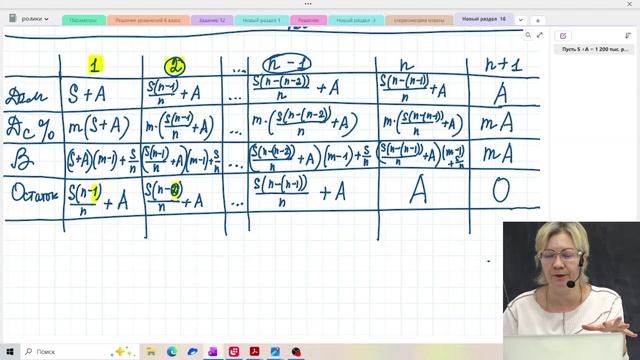 ролики
Параметры
Решение уравнений 6 класс
Задание 12
Новый раздел 1
Решение
Новый раздел 3
стереометрия ответы
Новый раздел 16
Пусть S +A = 1 200 тыс. р...
1 2 ... n-1 n n+1
Долг S+A S(n-1)/n +A ... S(n-(n-2))/n +A S(n-(n-1))/n +A A
Д с % m(S+A) m·(S(n-1)/n +A) ... m·(S(n-(n-2))/n +A) m·(S(n-(n-1))/n +A) mA
В (S+A)(m-1)+S/n (S(n-1)/n +A)(m-1)+S/n ... (S(n-(n-2))/n +A)(m-1)+S/n (S(n-(n-1))/n +A)(m-1)+S/n mA
Остаток S(n-1)/n +A S(n-2)/n +A ... S(n-(n-1))/n +A A 0
Поиск